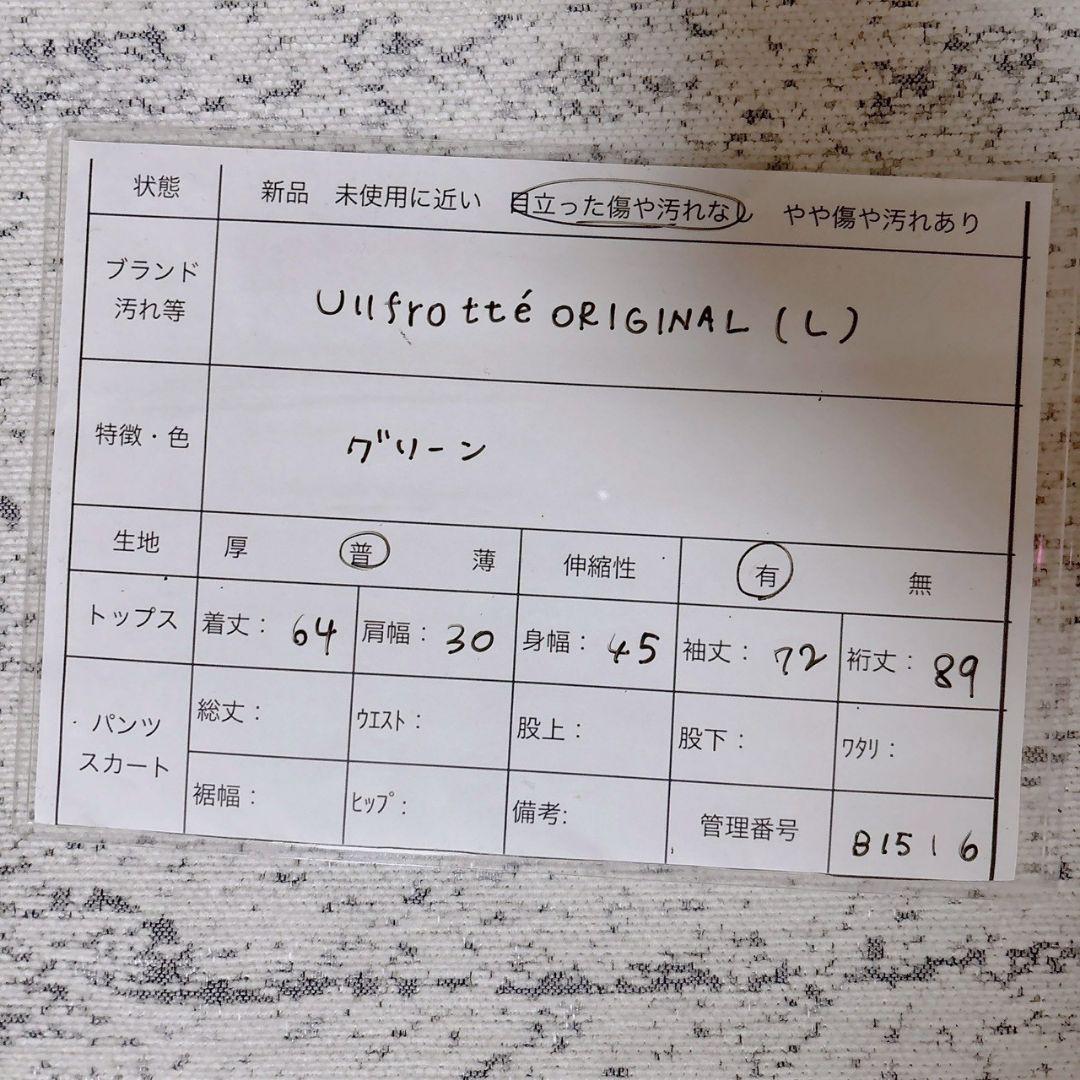 状態 新品 未使用に近い 目立った傷や汚れなし やや傷や汚れあり
ブランド
汚れ等
Ullfrotté ORIGINAL (L)
特徴・色 グリーン
生地 厚 普 薄 伸縮性 有 無
トップス 着丈: 64 肩幅: 30 身幅: 45 袖丈: 72 裄丈: 89
パンツ
スカート
総丈: ウエスト: 股上: 股下: ワタリ:
裾幅: ヒップ: 備考: 管理番号 B1516